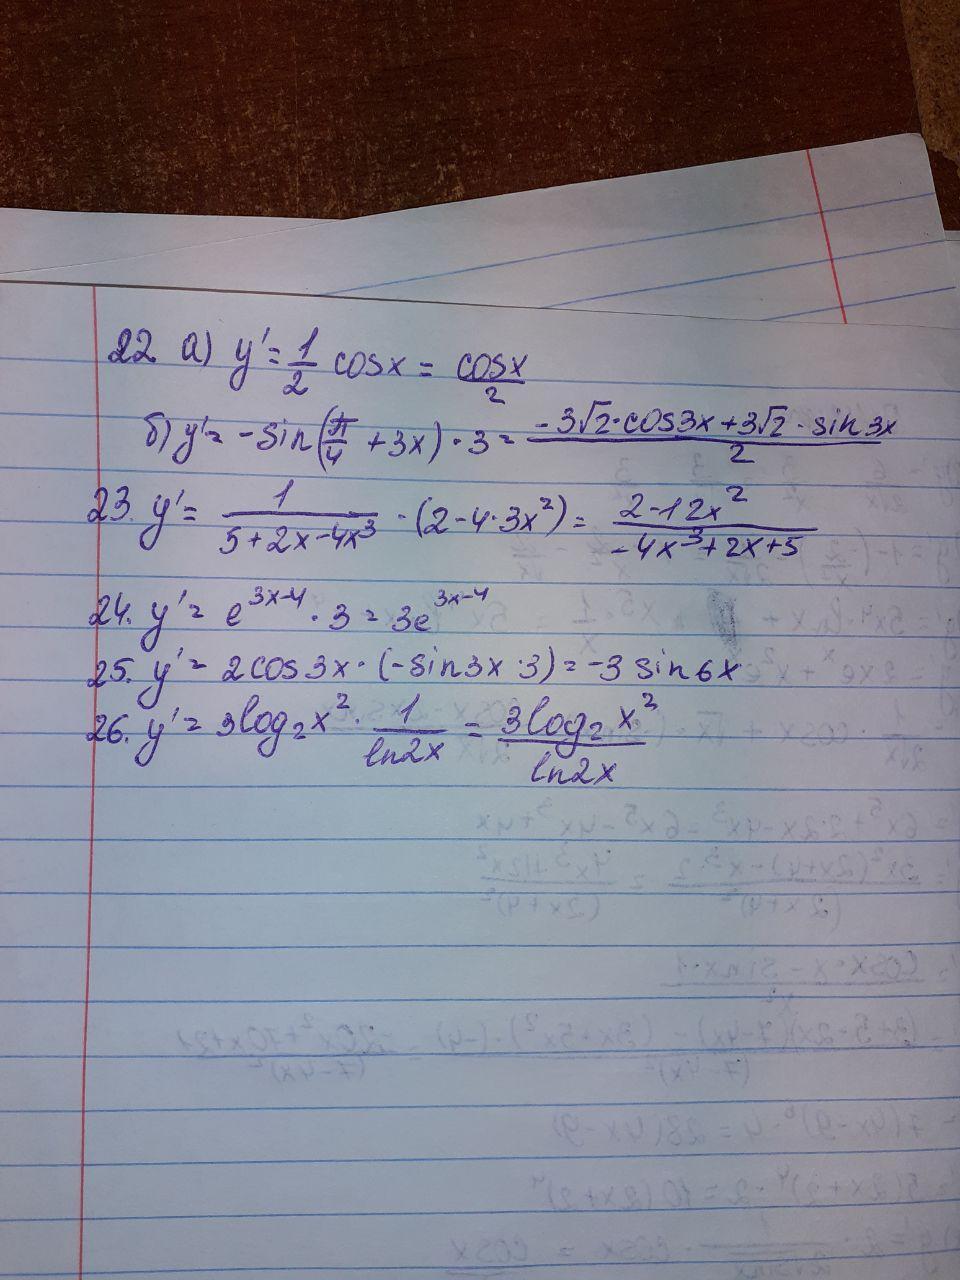 22. а) y' = 1/2 cosx = cosx/2
б) y' = -sin(π/4 + 3x) · 3 = (-3√2 · cos3x + 3√2 · sin3x)/2
23. y' = 1/(5+2x-4x³) · (2-4·3x²) = (2-12x²)/(-4x³+2x+5)
24. y' = e^(3x-4) · 3 = 3e^(3x-4)
25. y' = 2cos3x · (-sin3x·3) = -3sin6x
26. y' = 3log₂x² · 1/ln2x = 3log₂x²/ln2x